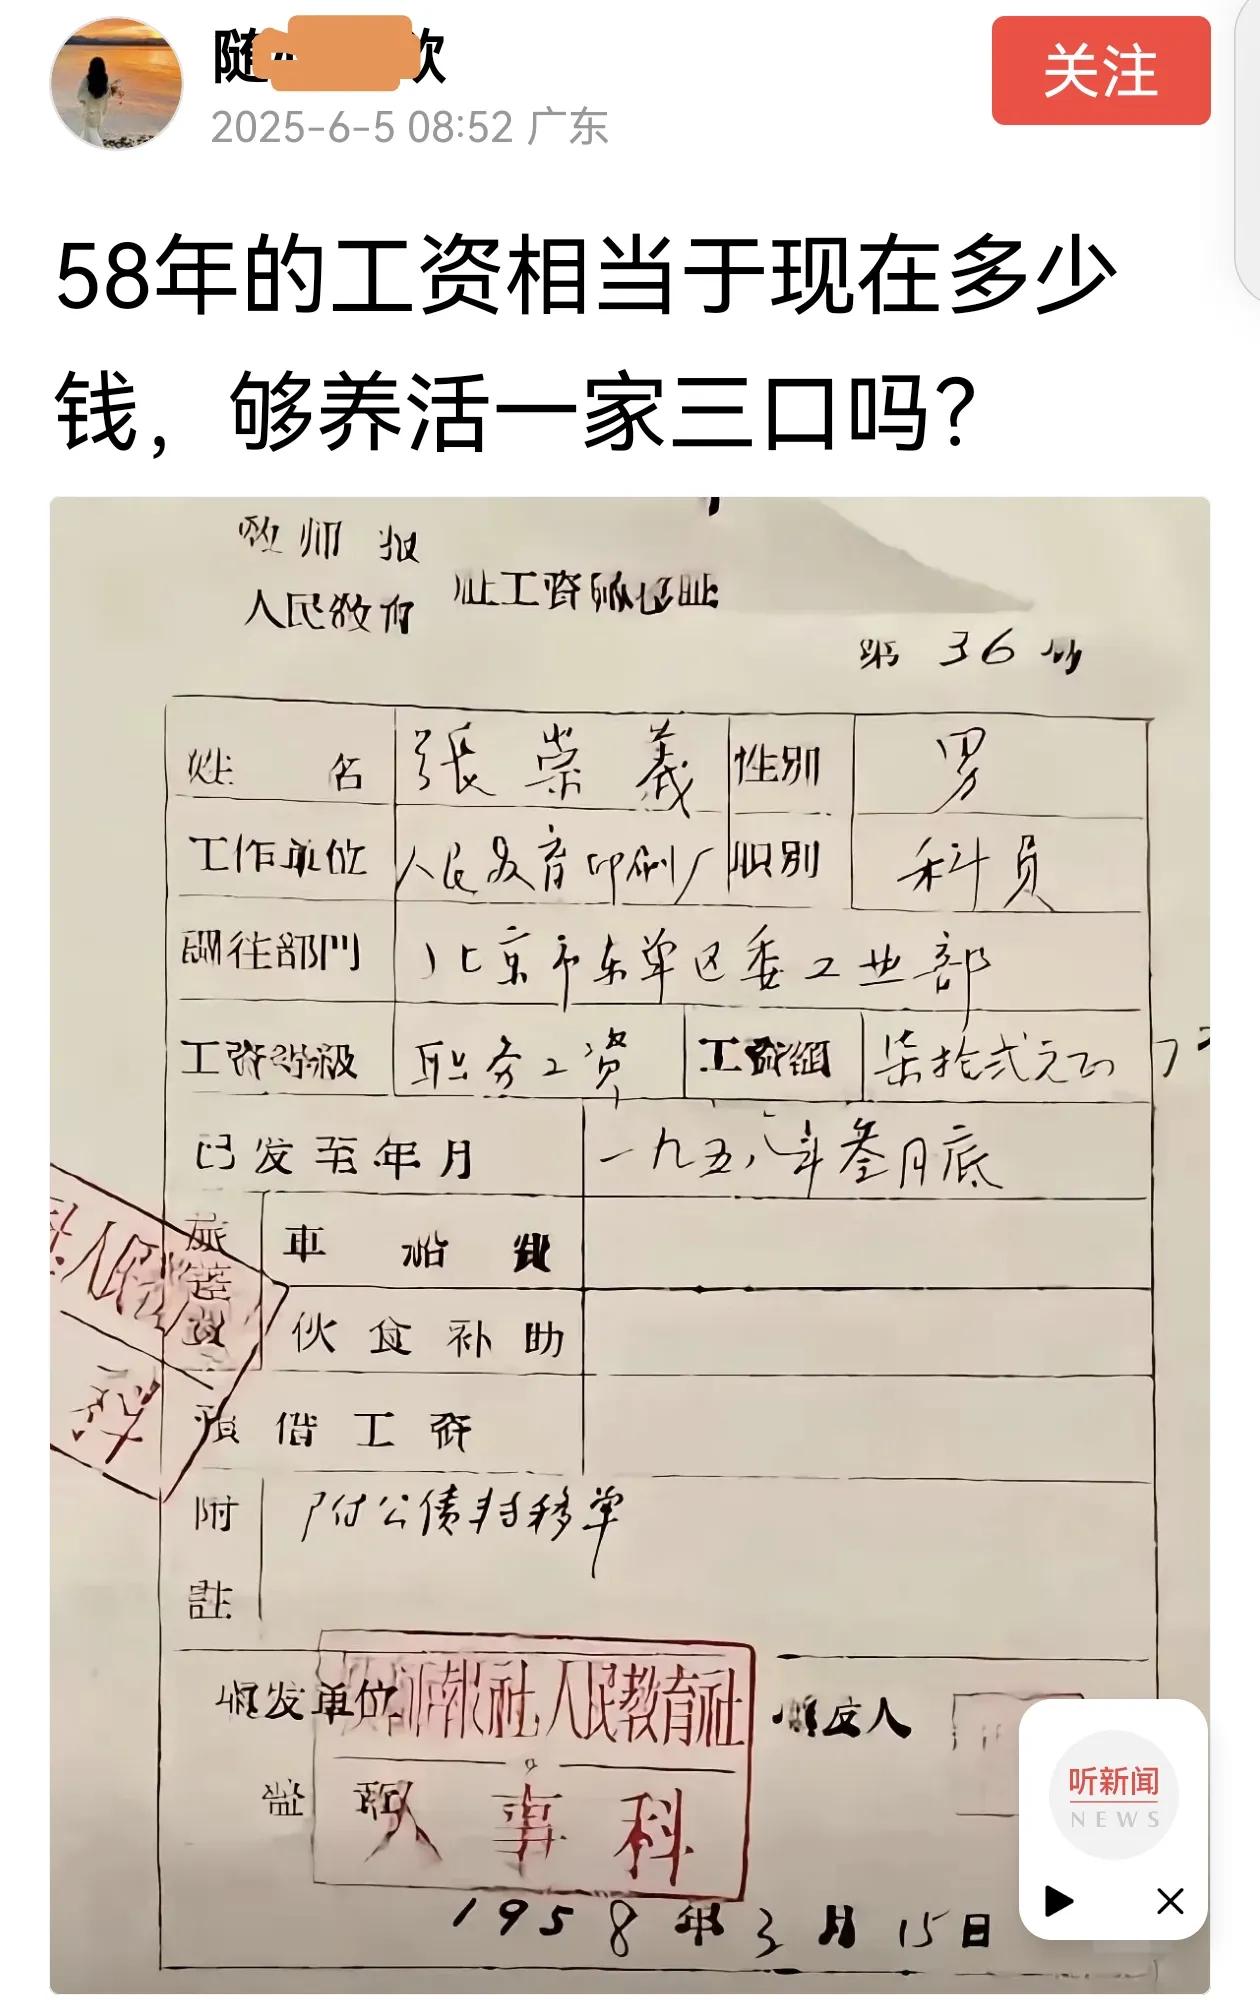 2025-6-5 08:52 广东
关注
58年的工资相当于现在多少
钱，够养活一家三口吗？
教师报
人民教育
社工资
第 36 号
姓 名 張崇義 性别 男
工作单位 人民教育印刷厂 职别 科员
调往部门 北京市东单区委工业部
工资等级 职务工资 工资额 柒拾弍元正
已发至年月 一九五八年叁月底
旅
费
車 船 费
伙食补助
预借工资
附
註
附公债转移单
发单位
教师報社人民教育社
人事科
发人
1958年3月15日
听新闻
NEWS